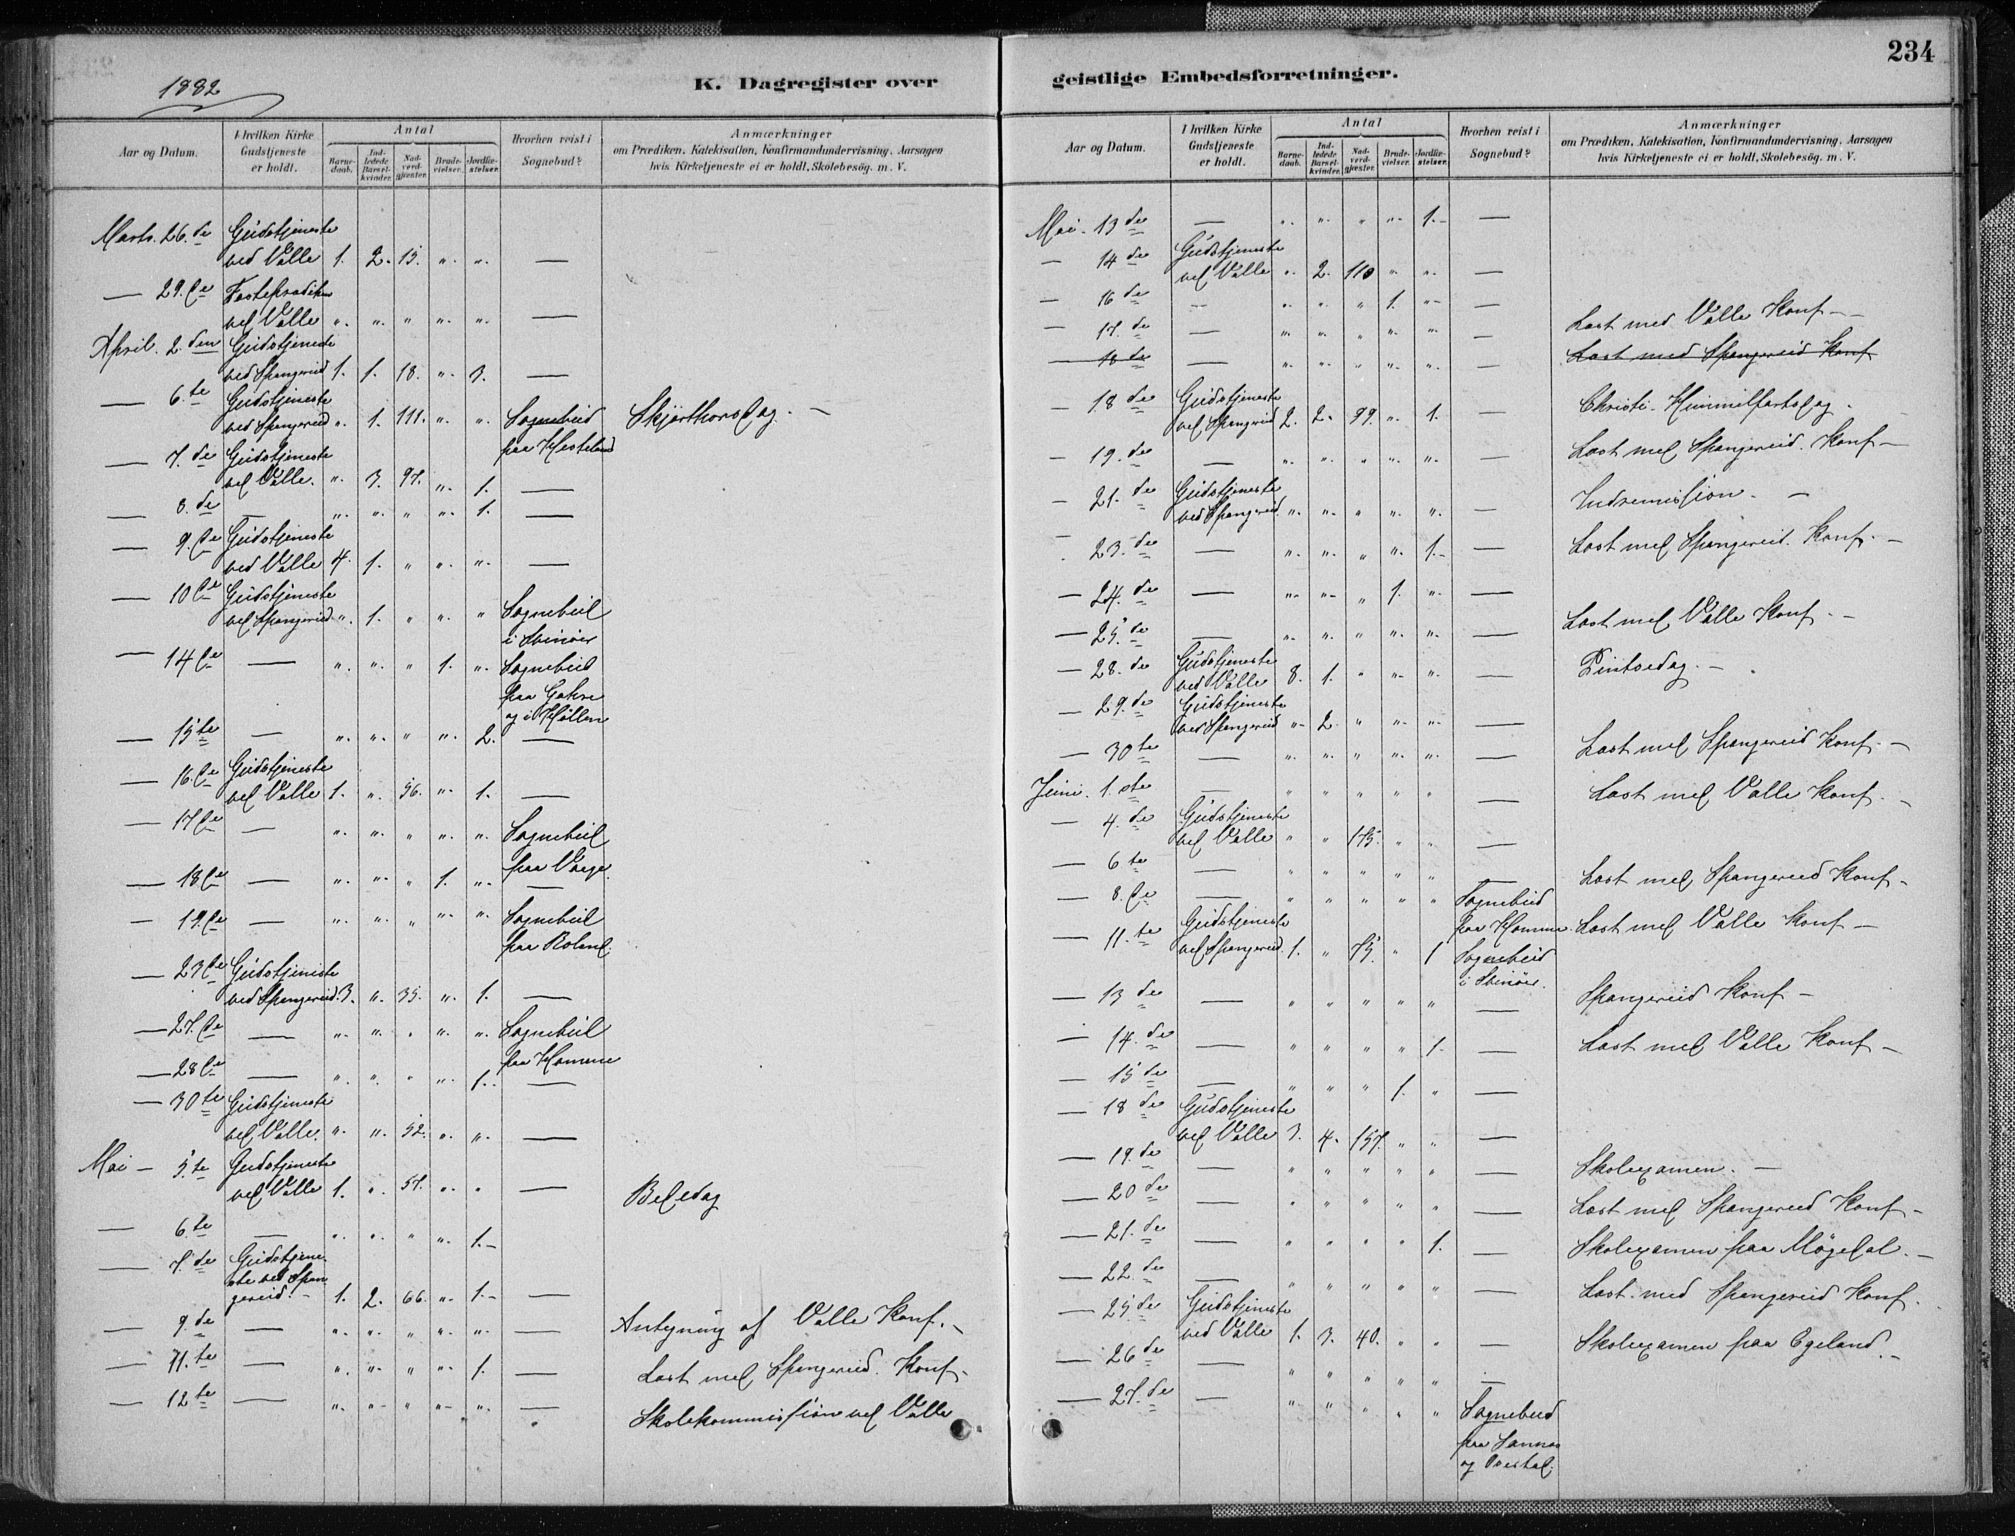 234
1882
K. Dagregister over geistlige Embedsforretninger.
Aar og Datum. I hvilken Kirke Gudstjeneste er holdt. Antal Barnedaab. Indledede Barselkvinder. Nadverdgjæster. Brudevielser. Jordfæstelser. Hvorhen reist i Sognebud? Anmærkninger om Prædiken, Katekisation, Konfirmandundervisning, Aarsagen hvis Kirketjeneste ei er holdt, Skolebesøg. m. V.
Marts. 26.de Gudstjeneste
ved Valle 1. 2. 15. „ „ —
— 29.de Fasteprædiken
ved Valle „ „ „ „ „ —
April. 2.den Gudstjeneste
ved Spangereid 1. 1. 18. „ 3. —
— 6.te Gudstjeneste
ved Spangereid „ 1. 111. „ „ Sognebud Skjærthorsdag. —
paa Hesteland
— 7.de Gudstjeneste
ved Valle. „ 3. 97. „ 1. —
— 8.de — „ „ „ „ 1. —
— 9.de Gudstjeneste
ved Valle 4. 1. „ „ „ —
— 10de Gudstjeneste
ved Spangereid „ 1. „ „ „ Sognebud
i Svinøer
— 14de — „ „ „ 1. „ Sognebud
paa
og i Høllen
— 15te — „ „ „ „ 2. —
— 16.de Gudstjeneste
ved Valle 1. „ 56. „ 1. —
— 17de — „ „ „ „ „ Sognebud
paa Vaage.
— 18de — „ „ „ 1. „ —
— 19.de — „ „ „ „ „ Sognebud
paa
— 23de Gudstjeneste
ved Spangereid. 3. „ 35. „ 1. —
— 27.de — „ „ „ „ „ Sognebud
paa Homme
— 28de — „ „ „ „ 1. —
— 30te Gudstjeneste
ved Valle. „ „ 52. „ „ —
Mai — 5.te Gudstjeneste
ved Valle 1. „ 57. „ „ — Bededag
— 6.te — „ „ „ „ 1. —
— 7.de Gudstjene-
ste ved Span-
gereid. — 1. 2. 66. „ 1. —
— 9.de — „ „ „ „ „ — Antegning af Valle Konf. —
— 11.te — „ „ „ „ 1. — Læst med Spangereid. Konf —
— 12te — „ „ „ „ „ — Skolekommission ved Valle
Aar og Datum. I hvilken Kirke Gudstjeneste er holdt. Antal Barnedaab. Indledede Barselkvinder. Nadverdgjæster. Brudevielser. Jordfæstelser. Hvorhen reist i Sognebud? Anmærkninger om Prædiken, Katekisation, Konfirmandundervisning, Aarsagen hvis Kirketjeneste ei er holdt, Skolebesøg. m. V.
Mai. 13de — „ „ „ „ 1. —
— 14de Gudstjeneste
ved Valle „ 2. 110 „ „ —
— 16de — „ „ „ 1. „ —
— 17.de — „ „ „ „ „ — Læst med Valle Konf —
— 18de — „ „ „ „ „ — Læst med Spangereid Konf
— 18de Gudstjeneste
ved Spangereid 2. 2. 99. „ 1. — Christi Himmelfartsdag.
— 19.de — „ „ „ „ „ — Læst med Spangereid. Konf —
— 21.de Gudstjeneste
ved Spangereid. „ „ „ „ „ Indremission. —
23.de — „ „ „ „ 1. — Læst med Spangereid. Konf. —
— 24.de — „ „ „ 1. „ —
— 25.de — „ „ „ „ „ — Læst med Valle Konf —
— 28.de Gudstjeneste
ved Valle 8. 1. „ „ „ — Pintsedag. —
— 29.de Gudstjeneste
ved Spangereid „ 2. „ „ „ —
— 30te — „ „ „ „ „ — Læst med Spangereid Konf. —
Juni. 1.ste — „ „ „ „ „ — Læst med Valle Konf. —
— 4.de Gudstjeneste
ved Valle „ „ 175. „ „ —
— 6te — „ „ „ „ „ — Læst med Spangereid Konf —
— 8.de — „ „ „ „ „ Sognebud
paa Homme. Læst med Valle Konf —
— 11.te Gudstjeneste
ved Spangereid. 1. „ 75. „ 1 Sognebud
i Svinøer.
— 13de — „ „ „ „ „ — Spangereid Konf —
— 14.de — „ „ „ „ 1. — Læst med Valle Konf —
— 15de — „ „ „ 1. „ —
— 18de Gudstjeneste
ved Valle 3. 4. 157. „ „ —
— 19.de — „ „ „ „ „ — Skoleexamen. —
— 20de — „ „ „ „ „ — Læst med Spangereid Konf —
— 21.de — „ „ „ „ 1. — Skoleexamen paa Møgedal. —
— 22.de — „ „ „ „ „ — Læst med Spangereid Konf.
— 25de Gudstjeneste
ved Valle 1. 3. 40. „ „ — Skoleexamen paa Egeland. —
— 26de — „ „ „ „ „ —
— 27.de — „ „ „ „ „ Sognebud
paa Sannes
og